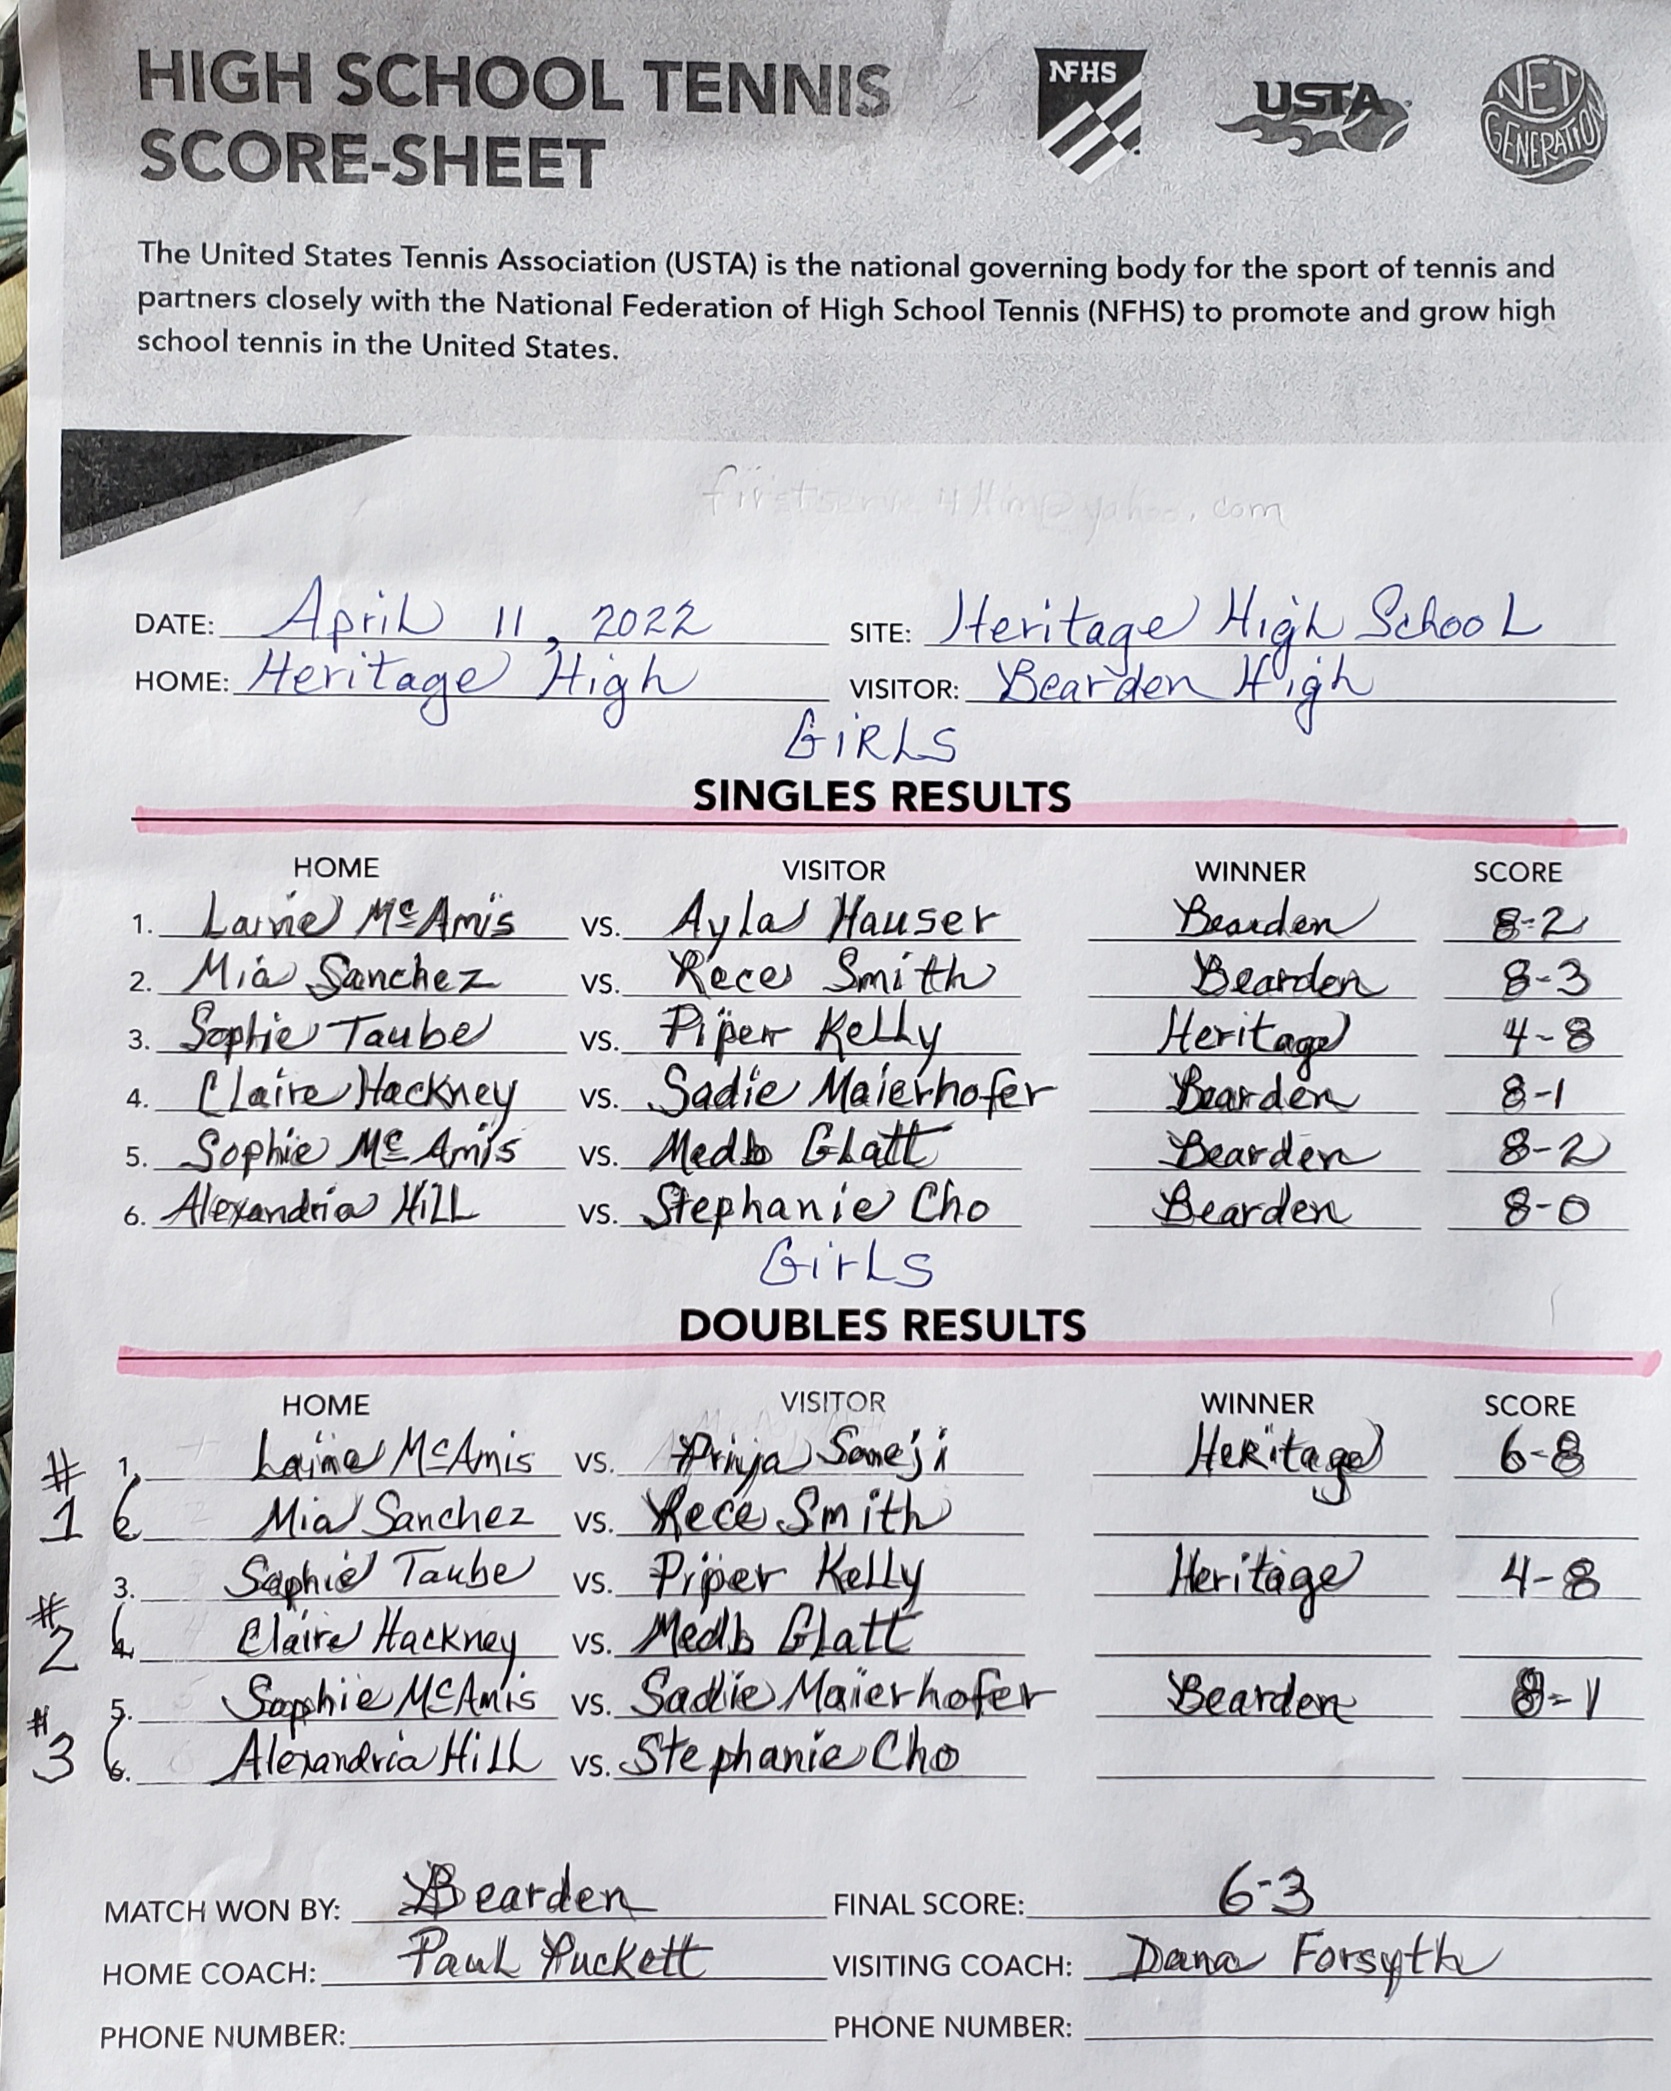 HIGH SCHOOL TENNIS
SCORE-SHEET
NFHS
USTA
NET GENERATION
The United States Tennis Association (USTA) is the national governing body for the sport of tennis and
partners closely with the National Federation of High School Tennis (NFHS) to promote and grow high
school tennis in the United States.
DATE: April 11, 2022 SITE: Heritage High School
HOME: Heritage High VISITOR: Bearden High
GiRLS
SINGLES RESULTS
HOME VISITOR WINNER SCORE
1. Laine McAmis vs. Ayla Hauser Bearden 8-2
2. Mia Sanchez vs. Rece Smith Bearden 8-3
3. Sophie Taube vs. Piper Kelly Heritage 4-8
4. Claire Hackney vs. Sadie Maierhofer Bearden 8-1
5. Sophie McAmis vs. Medb Glatt Bearden 8-2
6. Alexandria Hill vs. Stephanie Cho Bearden 8-0
GirLs
DOUBLES RESULTS
HOME VISITOR WINNER SCORE
#1 1. Laine McAmis vs. Priya Soneji Heritage 6-8
2. Mia Sanchez vs. Rece Smith
3. Sophie Taube vs. Piper Kelly Heritage 4-8
#2 4. Claire Hackney vs. Medb Glatt
5. Sophie McAmis vs. Sadie Maierhofer Bearden 8-1
#3 6. Alexandria Hill vs. Stephanie Cho
MATCH WON BY: Bearden FINAL SCORE: 6-3
HOME COACH: Paul Puckett VISITING COACH: Dana Forsyth
PHONE NUMBER: PHONE NUMBER: